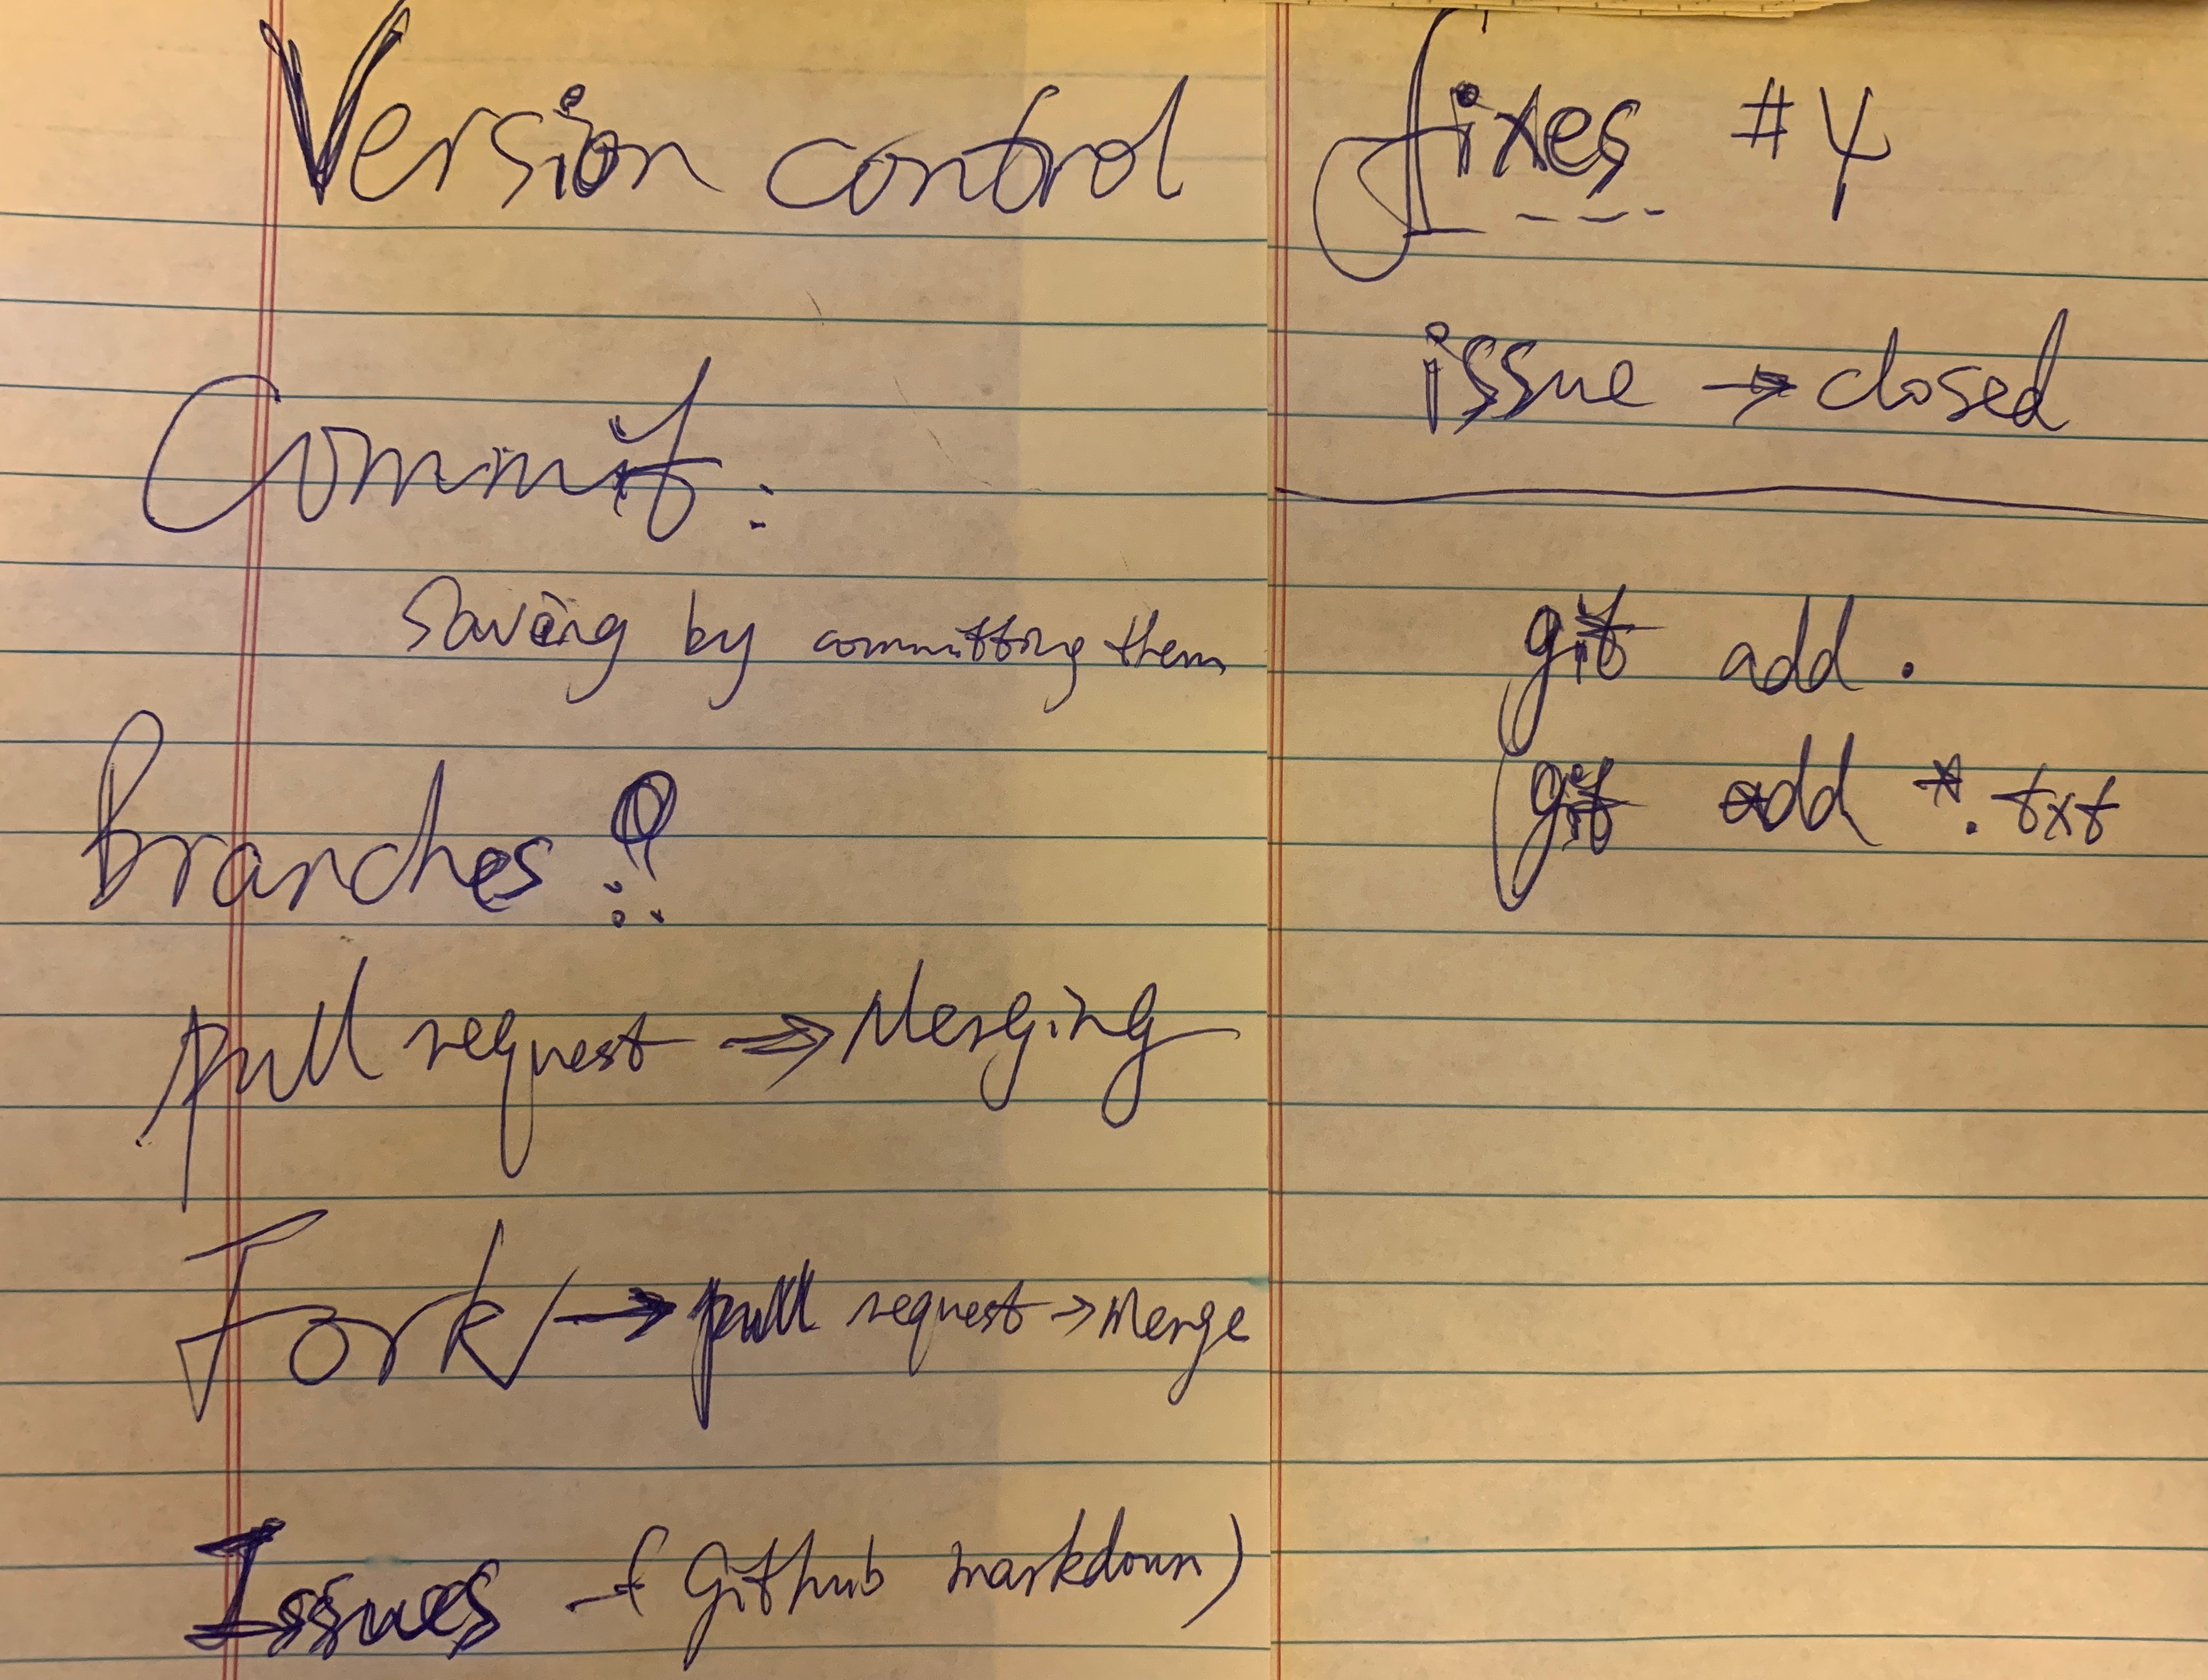 Version control
Commit:
Saving by committing them
Branches:
pull request → Merging
Fork → pull request → Merge
Issues → (Github markdown)
fixes #4
issue → closed
git add .
git add *.txt